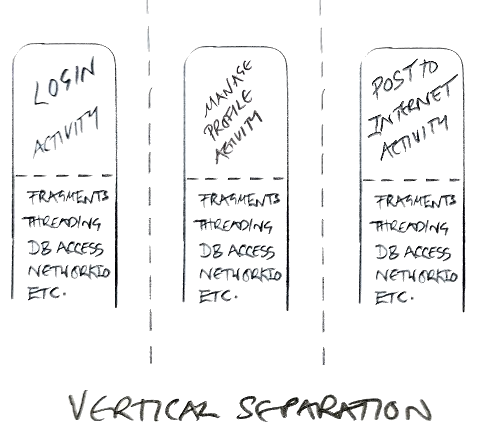 LOGIN
ACTIVITY
FRAGMENTS
THREADING
DB ACCESS
NETWORKIO
ETC.
MANAGE
PROFILE
ACTIVITY
FRAGMENTS
THREADING
DB ACCESS
NETWORKIO
ETC.
POST TO
INTERNET
ACTIVITY
FRAGMENTS
THREADING
DB ACCESS
NETWORKIO
ETC.
VERTICAL SEPARATION